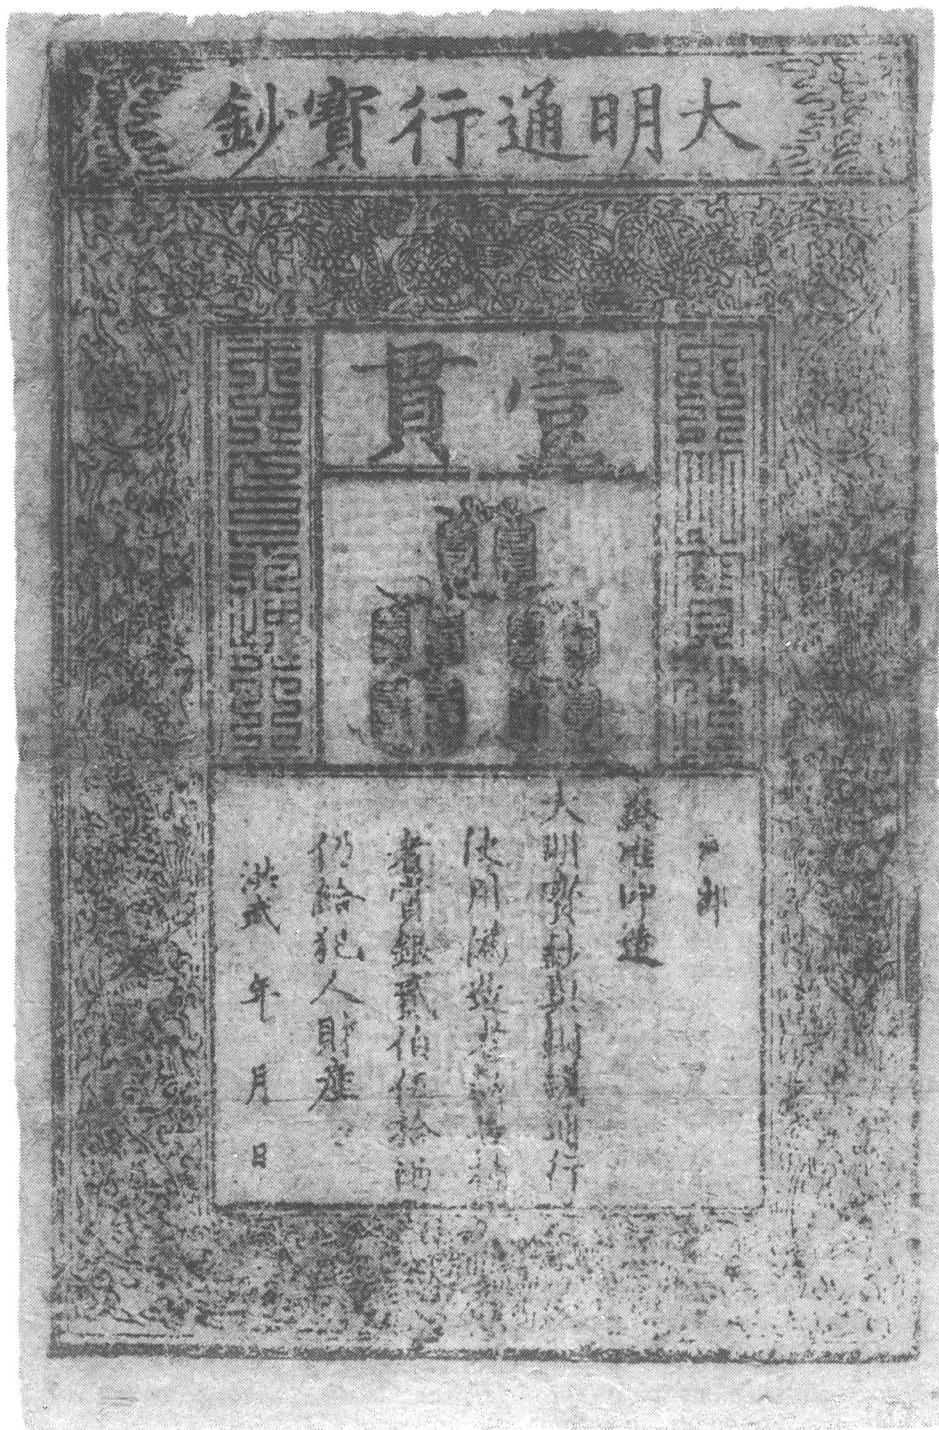 大明通行寶鈔
壹貫
戶部
奏准印造
大明寶鈔與銅錢通行
使用偽造者斬告捕
者賞銀貳伯伍拾兩
仍給犯人財產
洪武 年 月 日